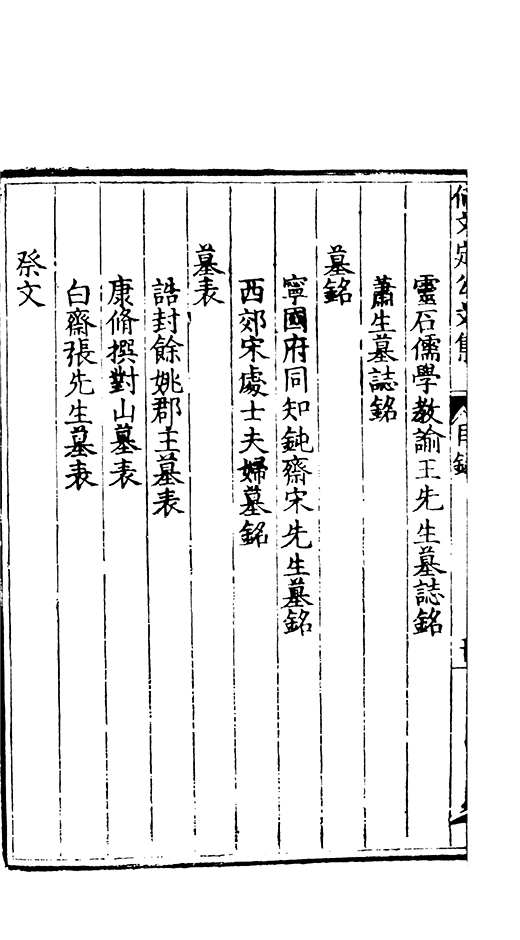 文定公文集 目錄
靈石儒學教諭王先生墓誌銘
蕭生墓誌銘
墓銘
寧國府同知鈍齋宋先生墓銘
西郊宋處士夫婦墓銘
墓表
誥封餘姚郡主墓表
康脩撰對山墓表
白齋張先生墓表
祭文